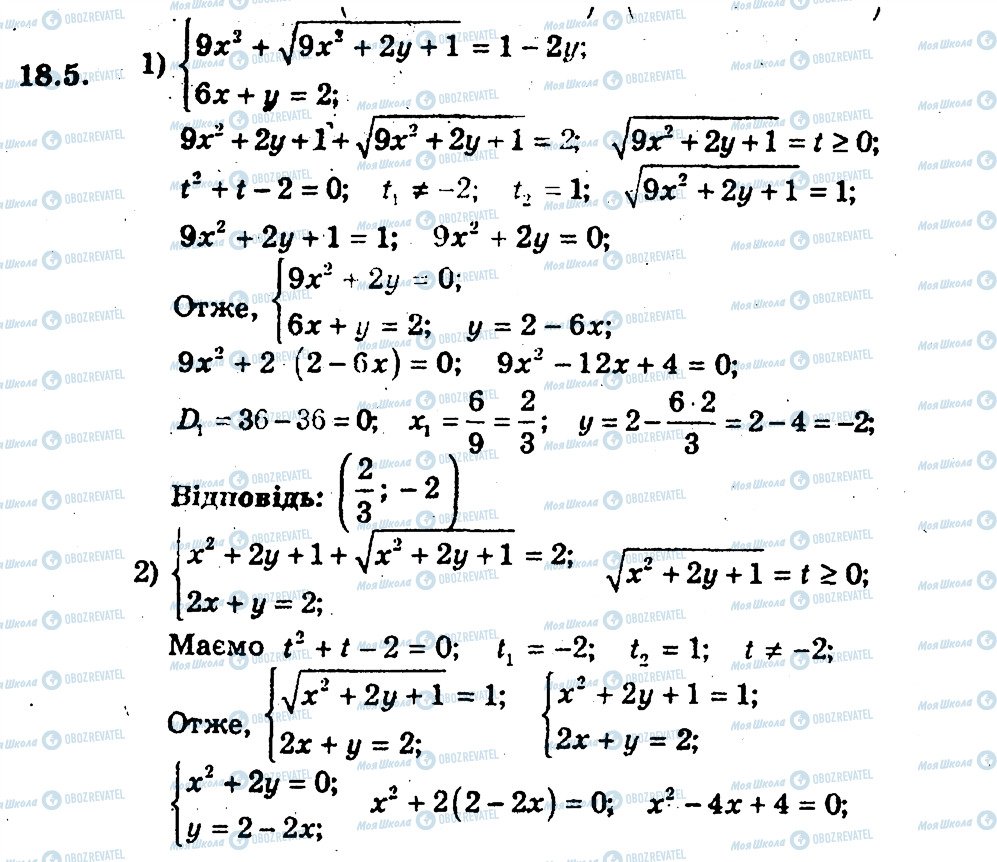 18.5. 1) {9x² + √(9x² + 2y + 1) = 1 − 2y;
6x + y = 2;
9x² + 2y + 1 + √(9x² + 2y + 1) = 2; √(9x² + 2y + 1) = t ≥ 0;
t² + t − 2 = 0; t₁ ≠ −2; t₂ = 1; √(9x² + 2y + 1) = 1;
9x² + 2y + 1 = 1; 9x² + 2y = 0;
Отже, {9x² + 2y = 0;
6x + y = 2; y = 2 − 6x;
9x² + 2 (2 − 6x) = 0; 9x² − 12x + 4 = 0;
D₁ = 36 − 36 = 0; x₁ = 6/9 = 2/3; y = 2 − (6·2)/3 = 2 − 4 = −2;
Відповідь: (2/3; −2)
2) {x² + 2y + 1 + √(x² + 2y + 1) = 2; √(x² + 2y + 1) = t ≥ 0;
2x + y = 2;
Маємо t² + t − 2 = 0; t₁ = −2; t₂ = 1; t ≠ −2;
Отже, {√(x² + 2y + 1) = 1; {x² + 2y + 1 = 1;
2x + y = 2; 2x + y = 2;
{x² + 2y = 0; x² + 2(2 − 2x) = 0; x² − 4x + 4 = 0;
y = 2 − 2x;
МояШкола OBOZREVATEL